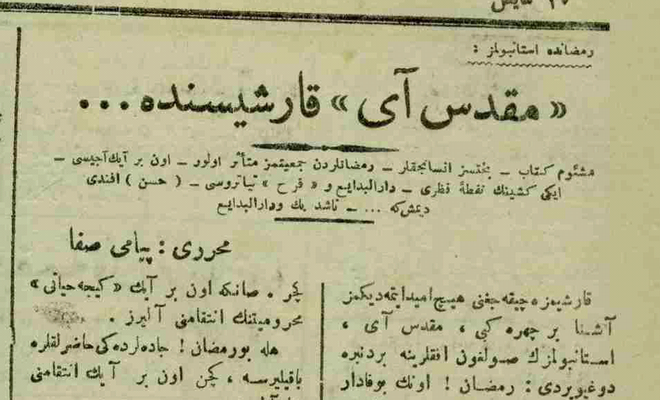 رمضانده استانبولمز :
«مقدس آی» قارشیسنده...
مشئوم کتاب – بختسز انسانجقلر – رمضانلردن جمعیتمز متأثر اولور – اون بر آیك آجیسی –
ایکی کشینك نقطهٔ نظری – دارالبدایع و « فرح » تیاتروسی – ( حسن ) افندی
دیمش که ... – ناشد بك ودارالبدایع
محرری : پیامی صفا
قارشیمزه چیقه جغنی هیچ امید ایتمه دیکمز
آشنا بر چهره کبی ، مقدس آی ،
استانبولمزك صولغون افقلرینه بردنبره
دوغیویردی : رمضان ! اونك بوفادار
کچر . صانکه اون بر آیك «کیجه حیاتی»
محرومیتنك انتقامنی آلیرز .
هله بورمضان ! جاده لرده کی حاضرلقلره
باقیلیرسه ، کچن اون بر آیك انتقامنی